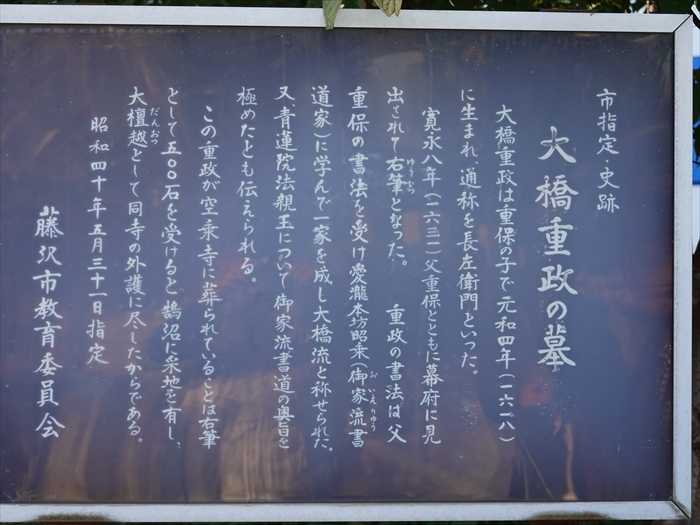 市指定・史跡
大橋重政の墓
大橋重政は重保の子で元和四年(一六一八)
に生まれ、通称を長左衛門といった。
寛永八年(一六三一)父重保とともに幕府に見
出されて右筆となった。 重政の書法は父
重保の書法を受け愛瀧本坊昭乗(御家流書
道家)に学んで一家を成し大橋流と称せられた。
又、青蓮院法親王について御家流書道の奥旨を
極めたとも伝えられる。
この重政が空乗寺に葬られていることは右筆
として五〇〇石を受けると、鵠沼に采地を有し、
大檀越として同寺の外護に尽したからである。
昭和四十年五月三十一日指定
藤沢市教育委員会